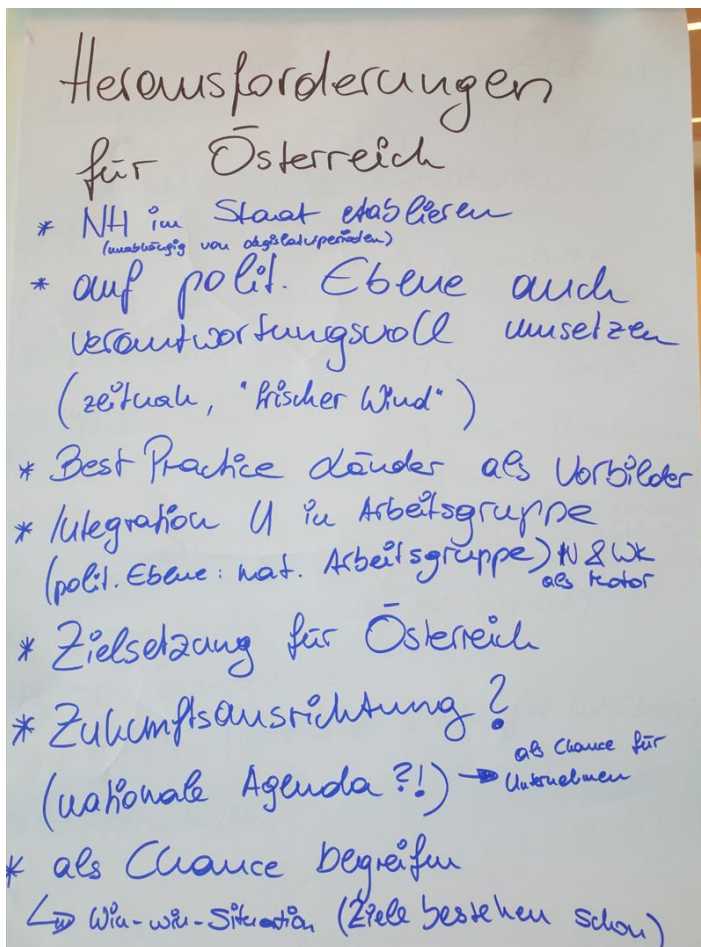 Herausforderungen
für Österreich
* NH im Staat etablieren
(unabhängig von Legislaturperioden)
* auf polit. Ebene auch
verantwortungsvoll umsetzen
(zeitnah, "frischer Wind")
* Best Practice Länder als Vorbilder
* Integration U in Arbeitsgruppe
(polit. Ebene: nat. Arbeitsgruppe) & WK
als Motor
* Zielsetzung für Österreich
* Zukunftsausrichtung?
(nationale Agenda?!) → als Chance für
Unternehmen
* als Chance begreifen
↳ Win-win-Situation (Ziele bestehen schon)